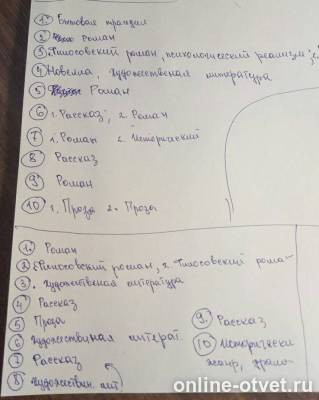 1. Бытовая трагедия
2. Роман
3. Философский роман, психологический реализм
4. Новелла, художественная литература
5. Роман
6. 1. Рассказ; 2. Роман
7. 1. Роман 2. Исторический
8 Рассказ
9. Роман
10. 1. Проза 2. Проза
1. Роман
2. Философский роман, 2. Философский рома-
3. художественная литература
4. Рассказ
5 Проза
6 художественная литерат.
7 Рассказ
8. художествен. лит
9. Рассказ
10 Исторически
жанр, драма
online-otvet.ru